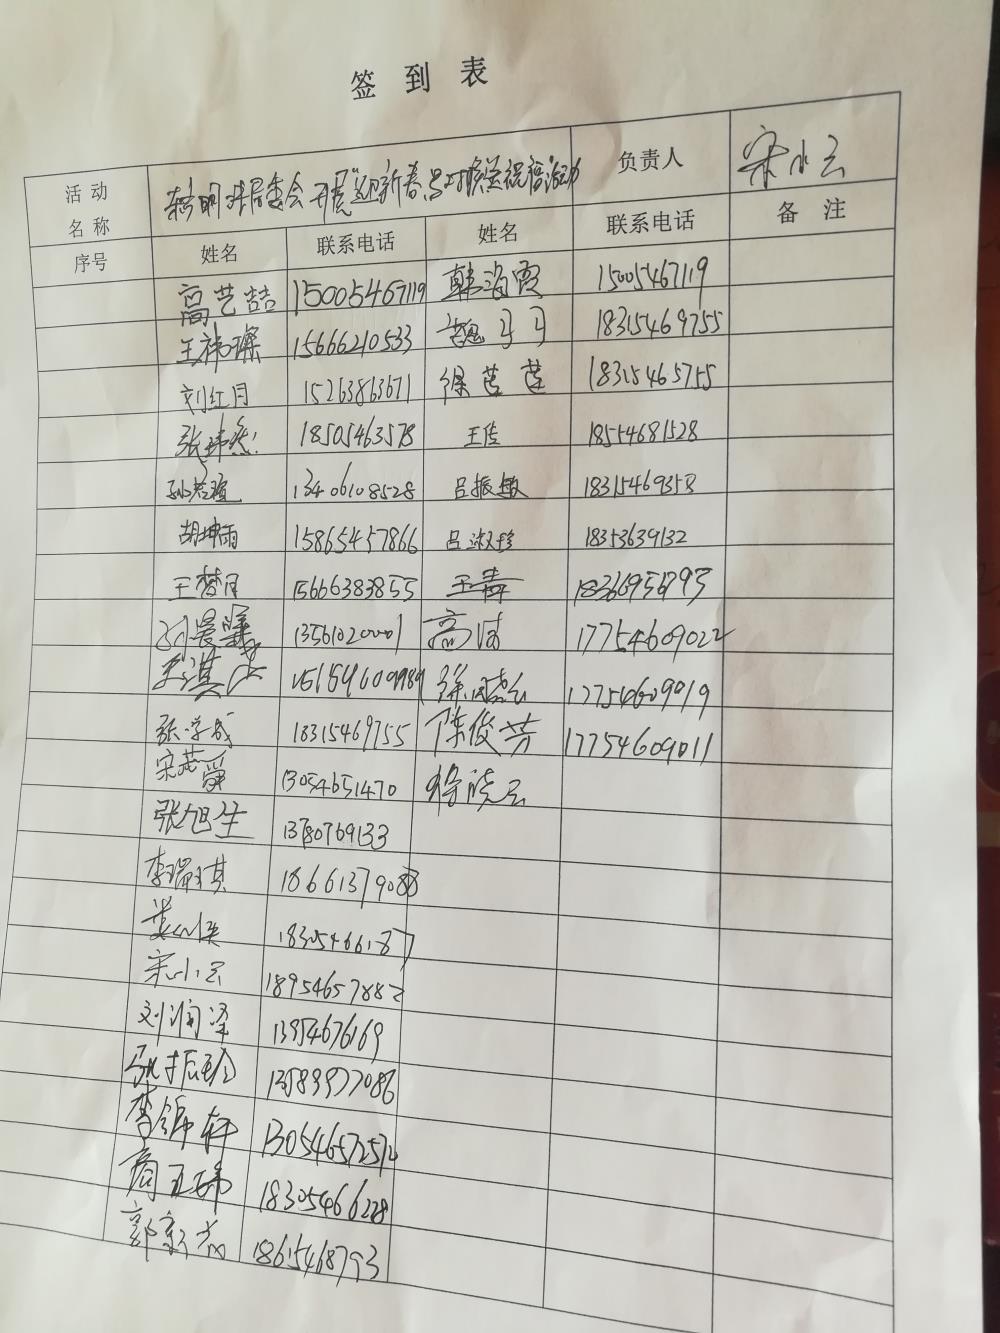 签到表
活动名称 居委会开展"迎新春 送祝福"活动 负责人 宋小云
序号 姓名 联系电话 姓名 联系电话 备注
高艺喆 15005467119 韩海霞 15005467119
王祎璨 15666210533 18315469755
刘红月 15263863671 徐莲莲 18315465755
张 18505463578 王传 18554681528
孙 13406108528 吕振敏 18315469358
胡坤雨 15865457866 吕淑珍 18353639132
王梦月 15666383855 王青 18366956793
刘晨曦 13561020001 高洁 17754609022
17754609019
张学成 18315469755 陈俊芳 17754609011
宋 13054651470 徐晓云
张旭生 13780769133
李瑞琪 1866137908
18305466187
宋小云 18954657882
刘润泽 13954676169
张振 13589977086
李锦轩 13054657257
商玉玮 18305466228
郭新 18615468793